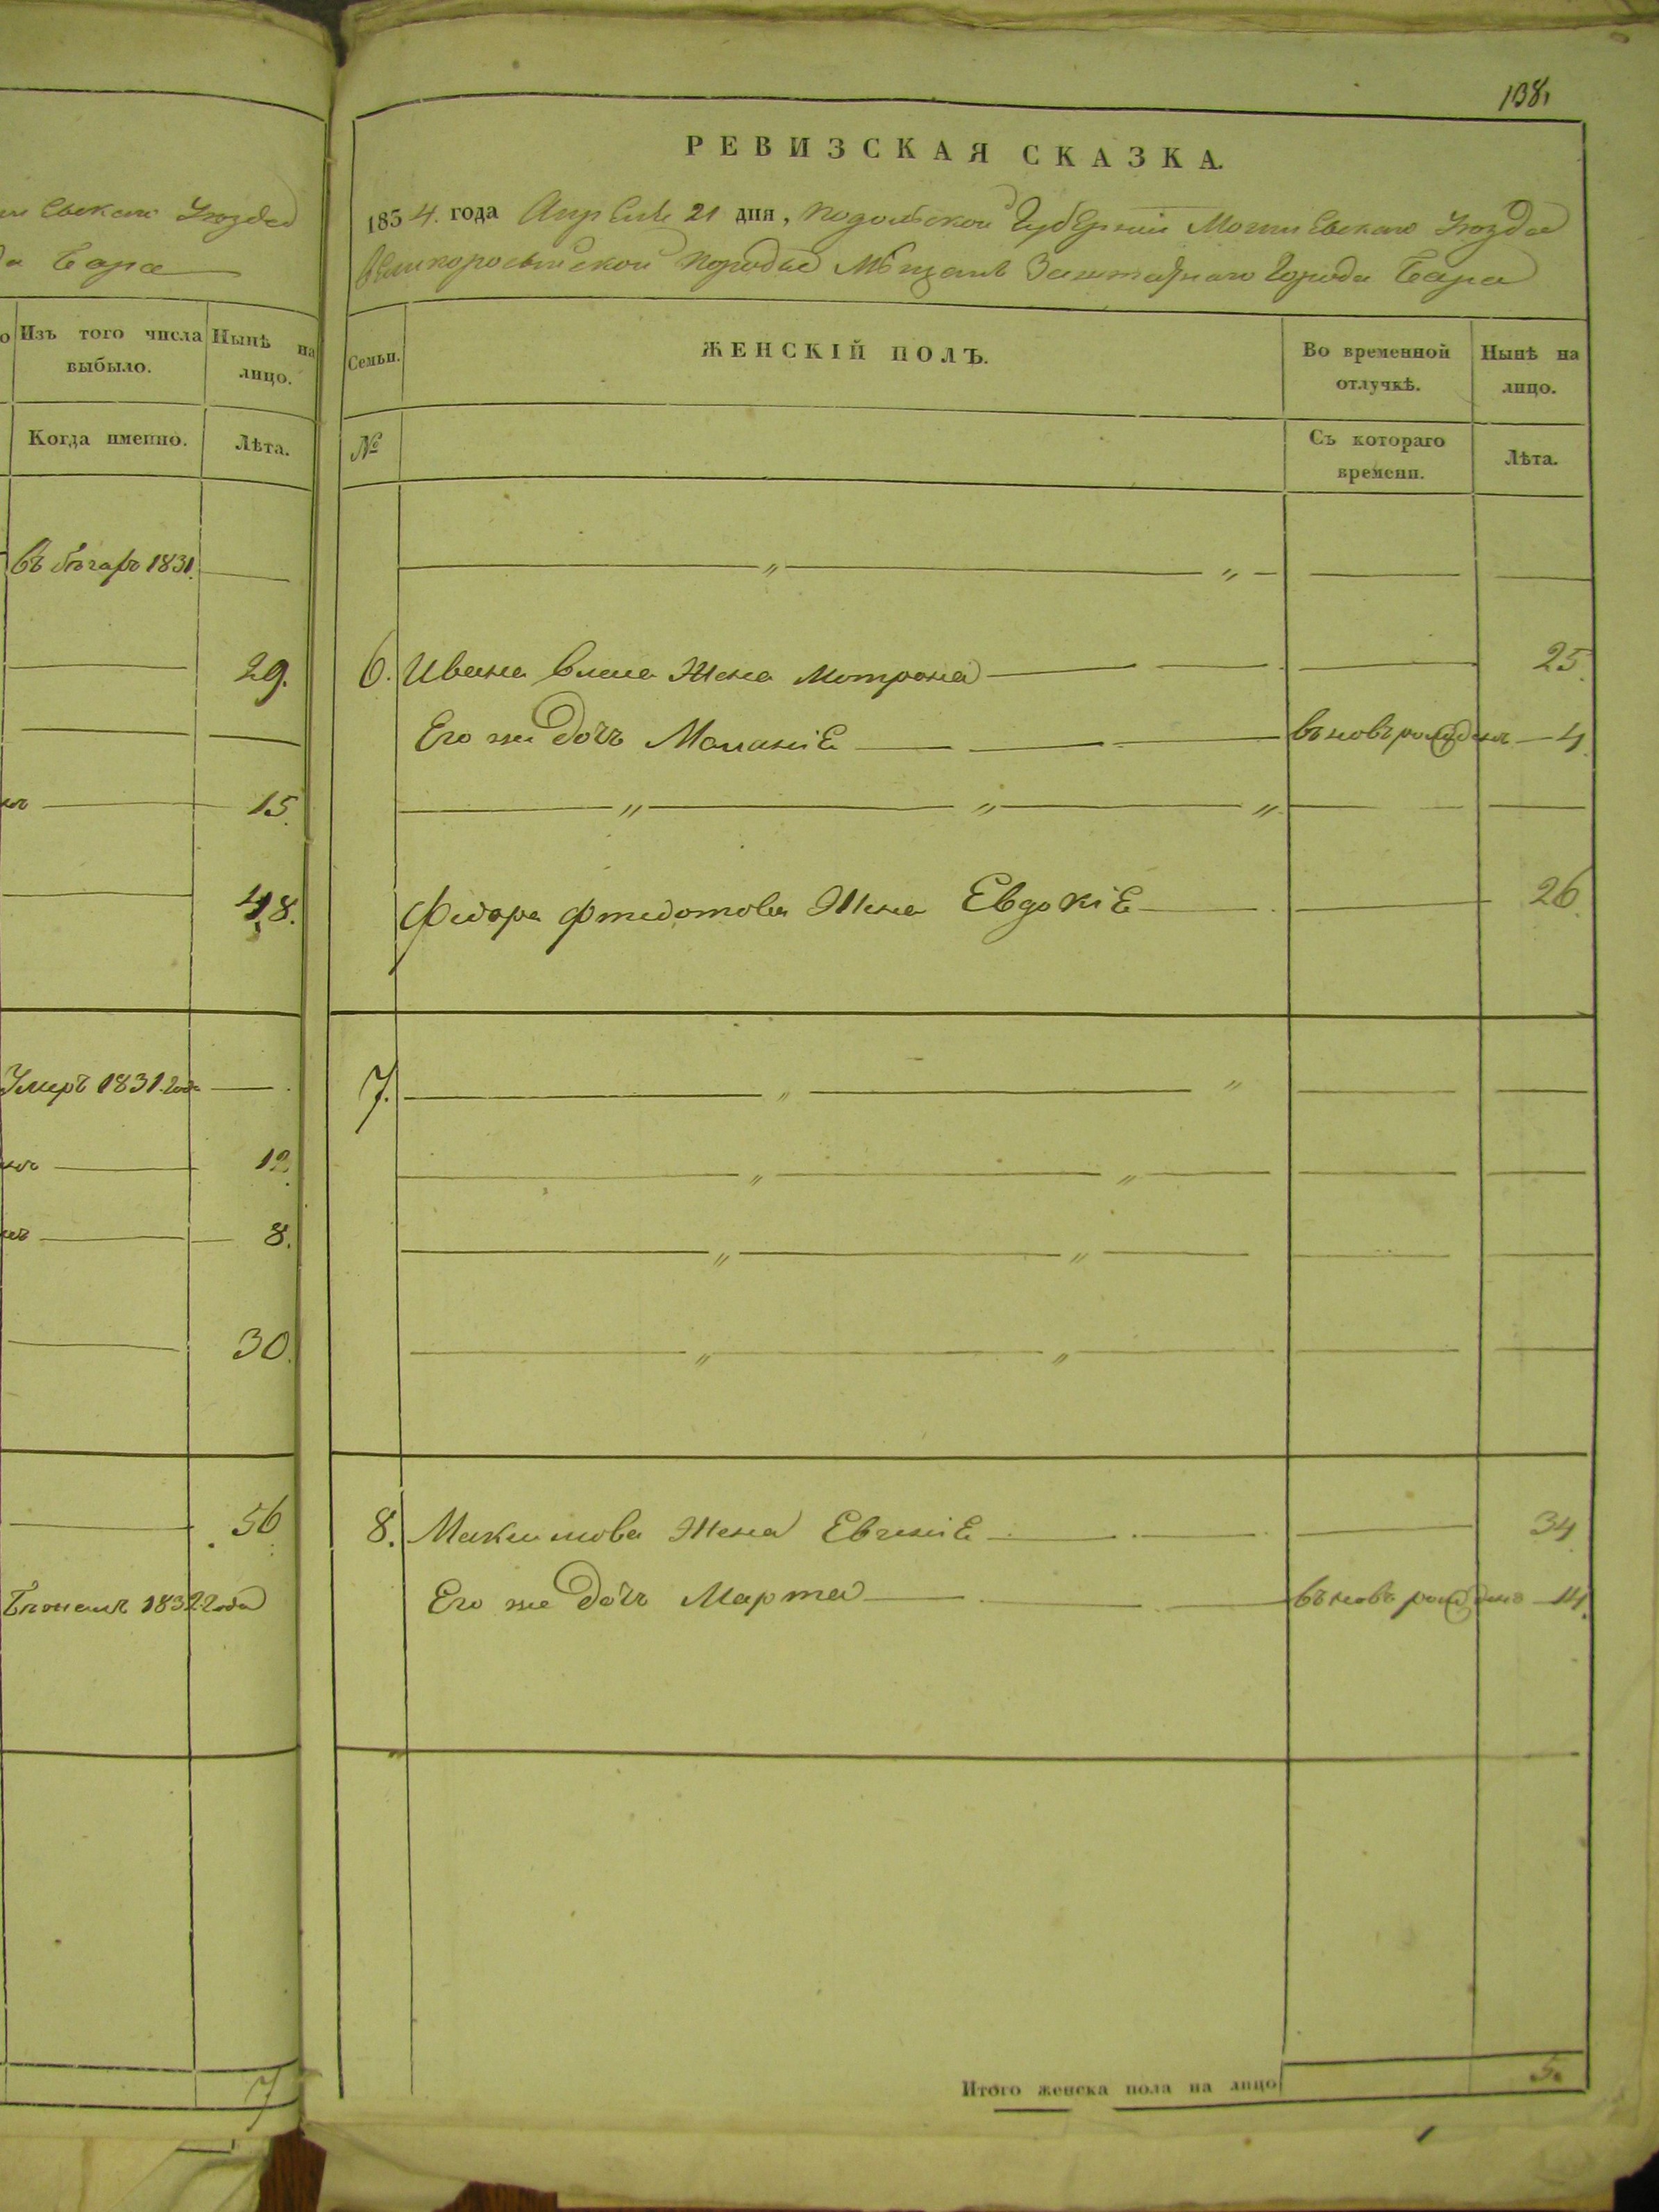 евскаго Уезда
да Бара
Изъ того числа выбыло.
Нынѣ на лицо.
Когда именно.
Лѣта.
въ 1831.
29.
15.
48.
Умеръ 1831. года
12.
8.
30.
56
1832 года
7
138
РЕВИЗСКАЯ СКАЗКА.
1834. года Апреля 21 дня, Подольской Губернии Могилевскаго Уезда
Великоросийской Породы Мѣщанъ Заштатнаго Города Бара
Семьи.
ЖЕНСКІЙ ПОЛЪ.
Во временной отлучкѣ.
Нынѣ на лицо.
№
Съ котораго времени.
Лѣта.
6. Ивана Жена Мотрона 25.
Его же дочь Маланіе въновь рожденна 4
Федора Жена Евдокіе 26.
7.
8. Максимова Жена Евгеніе 34
Его же дочь Марта въновь рожденна 14.
Итого женска пола на лицо 5.